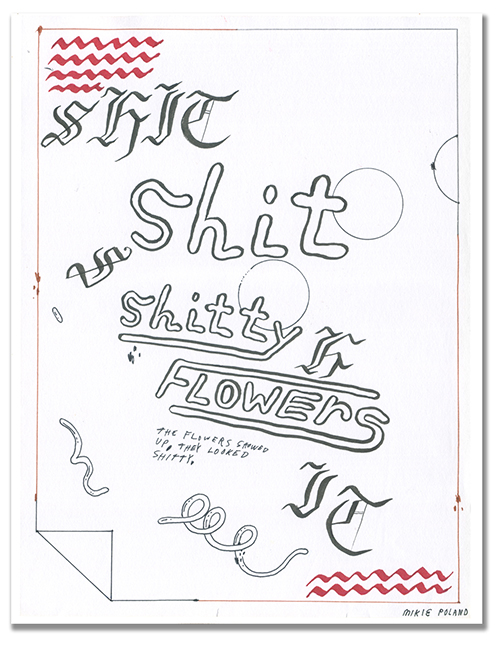 SHIT
Shit
S
Shitty
H
FLOWERS
THE FLOWERS SHOWED
UP, THEY LOOKED
SHITTY.
IT
MIKIE POLAND